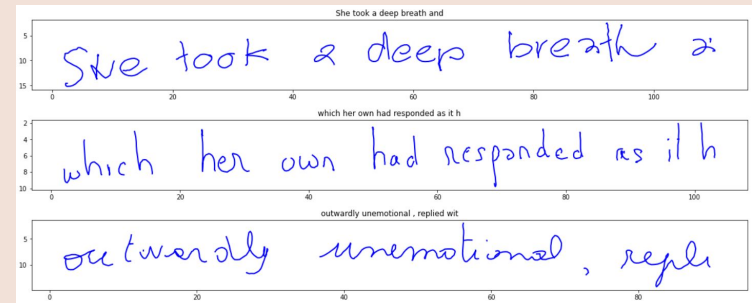 She took a deep breath and
5
10
15
She took a deep breath a
0 20 40 60 80 100
which her own had responded as it h
2
4
6
8
10
which her own had responded as it h
0 20 40 60 80 100
outwardly unemotional , replied wit
5
10
outwardly unemotional , repli
0 20 40 60 80